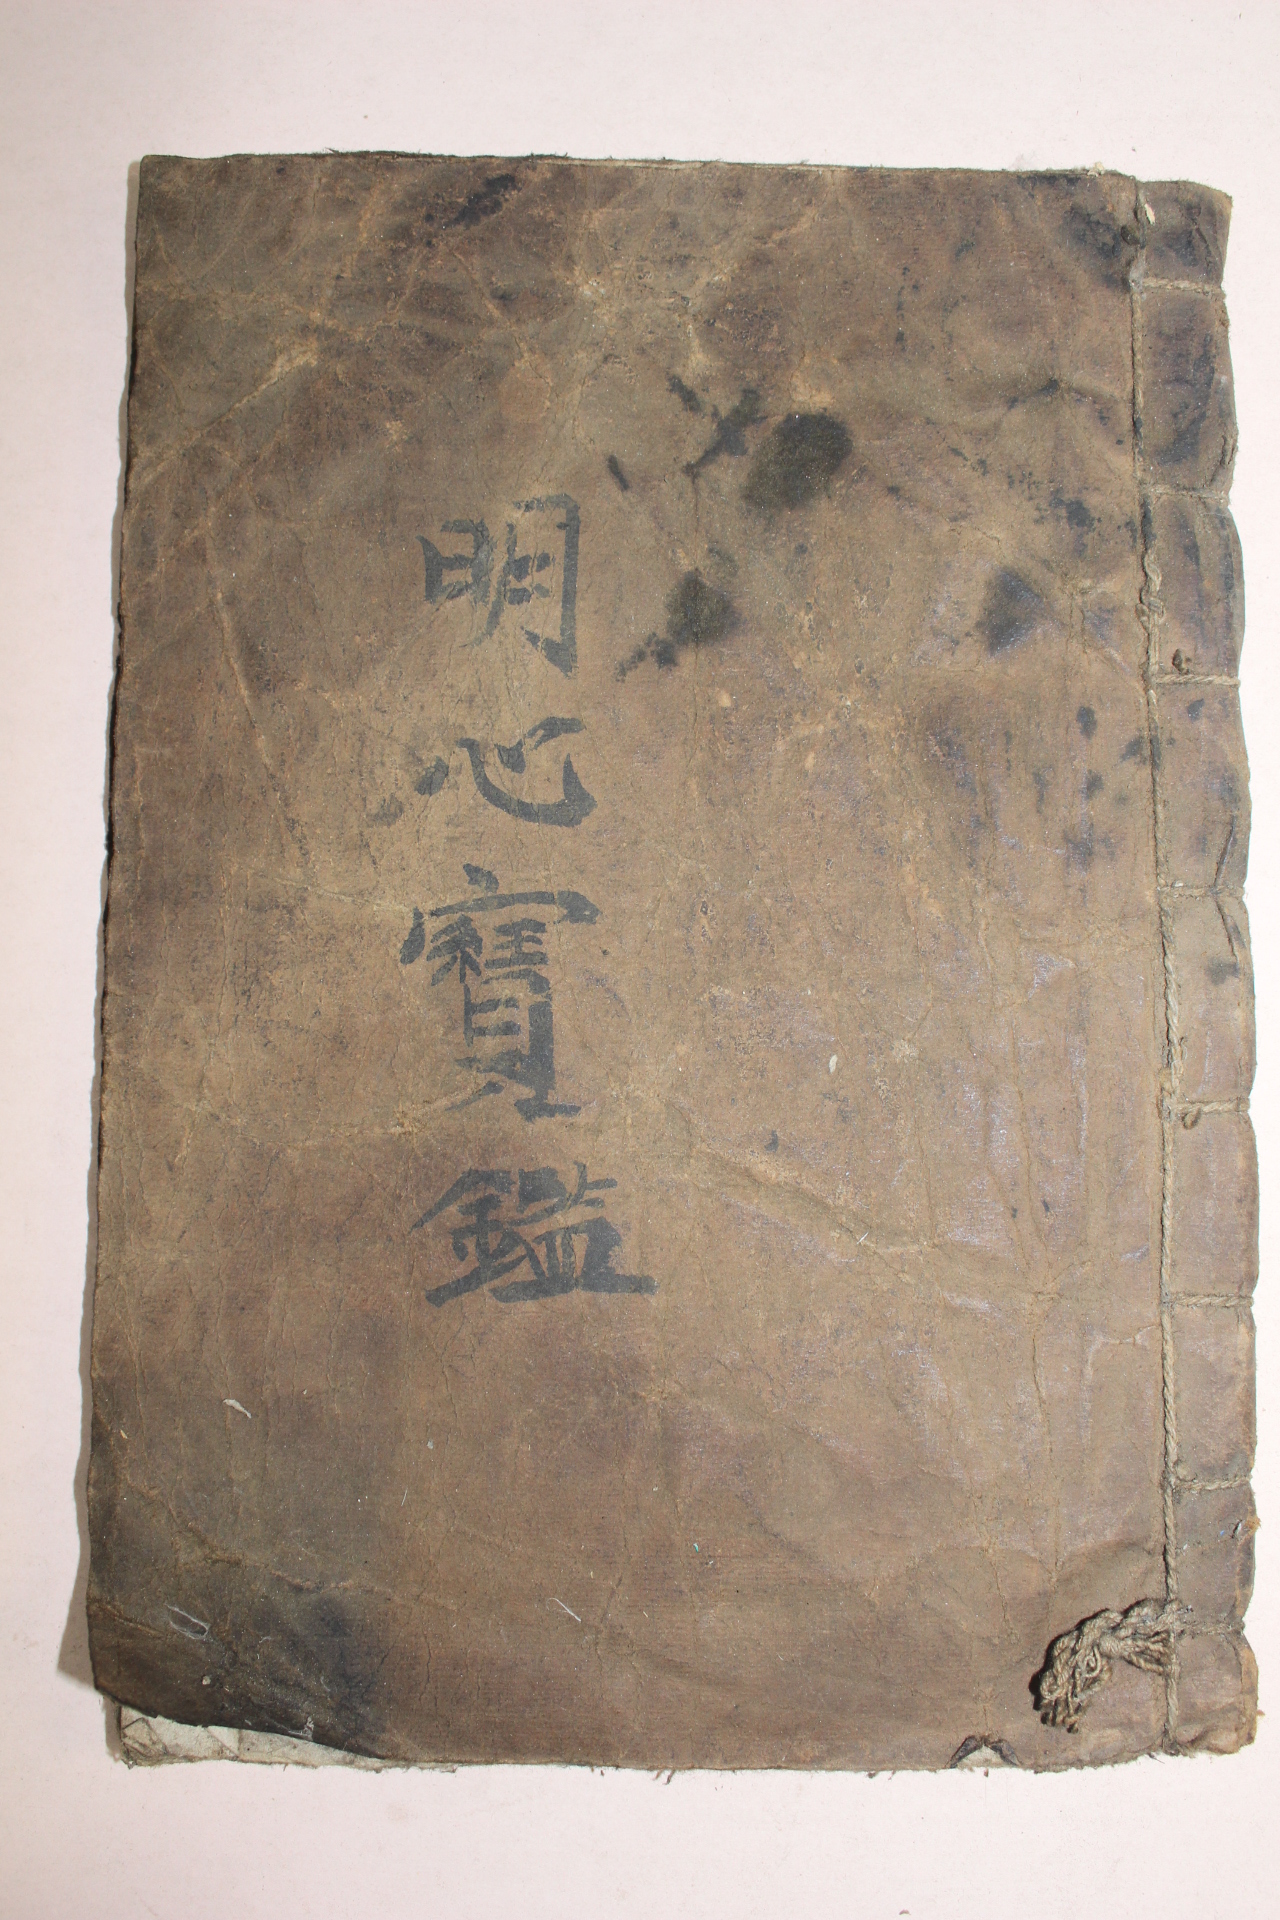 明心寶鑑